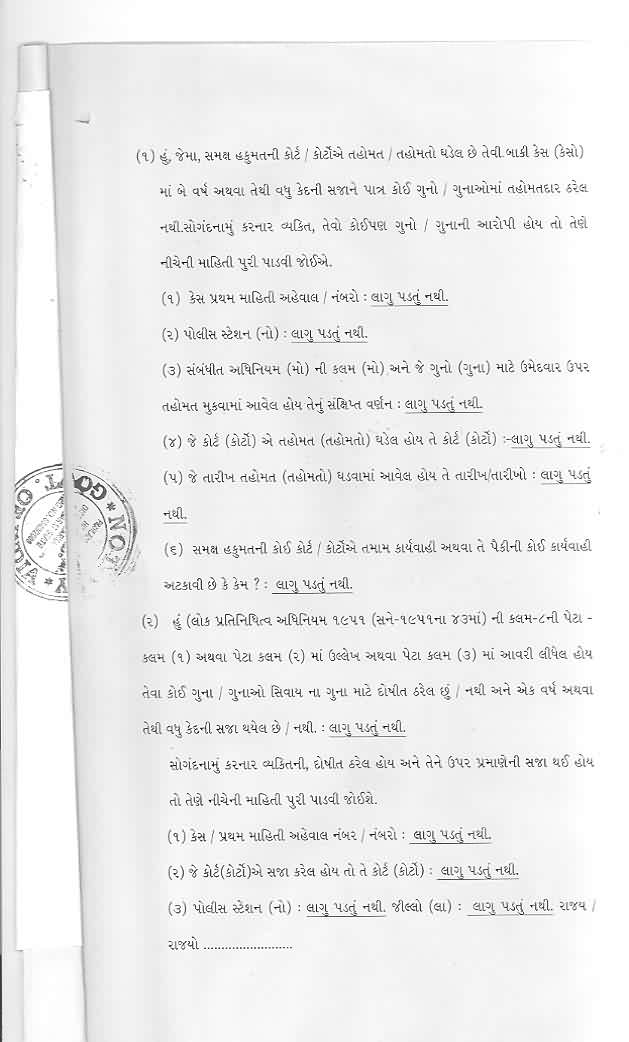 (૧) હું, જેમા, સમક્ષ હકુમતની કોર્ટ / કોર્ટોએ તહોમત / તહોમતો ઘડેલ છે તેવી બાકી કેસ (કેસો)
માં બે વર્ષ અથવા તેથી વધુ કેદની સજાને પાત્ર કોઈ ગુનો / ગુનાઓમાં તહોમતદાર ઠરેલ
નથી.સોગંદનામું કરનાર વ્યકિત, તેવો કોઈપણ ગુનો / ગુનાની આરોપી હોય તો તેણે
નીચેની માહિતી પુરી પાડવી જોઈએ.
(૧) કેસ પ્રથમ માહિતી અહેવાલ / નંબરો : લાગુ પડતું નથી.
(૨) પોલીસ સ્ટેશન (નો) : લાગુ પડતું નથી.
(૩) સંબંધીત અધિનિયમ (મો) ની કલમ (મો) અને જે ગુનો (ગુના) માટે ઉમેદવાર ઉપર
તહોમત મુકવામાં આવેલ હોય તેનું સંક્ષિપ્ત વર્ણન : લાગુ પડતું નથી.
(૪) જે કોર્ટ (કોર્ટો) એ તહોમત (તહોમતો) ઘડેલ હોય તે કોર્ટ (કોર્ટો) :-લાગુ પડતું નથી.
(૫) જે તારીખ તહોમત (તહોમતો) ઘડવામાં આવેલ હોય તે તારીખ/તારીખો : લાગુ પડતું
નથી.
(૬) સમક્ષ હકુમતની કોઈ કોર્ટ / કોર્ટોએ તમામ કાર્યવાહી અથવા તે પૈકીની કોઈ કાર્યવાહી
અટકાવી છે કે કેમ ? : લાગુ પડતું નથી.
(૨) હું (લોક પ્રતિનિધિત્વ અધિનિયમ ૧૯૫૧ (સને-૧૯૫૧ના ૪૩માં) ની કલમ-૮ની પેટા -
કલમ (૧) અથવા પેટા કલમ (૨) માં ઉલ્લેખ અથવા પેટા કલમ (૩) માં આવરી લીધેલ હોય
તેવા કોઈ ગુના / ગુનાઓ સિવાય ના ગુના માટે દોષીત ઠરેલ છું / નથી અને એક વર્ષ અથવા
તેથી વધુ કેદની સજા થયેલ છે / નથી. : લાગુ પડતું નથી.
સોગંદનામું કરનાર વ્યકિતની, દોષીત ઠરેલ હોય અને તેને ઉપર પ્રમાણેની સજા થઈ હોય
તો તેણે નીચેની માહિતી પુરી પાડવી જોઈશે.
(૧) કેસ / પ્રથમ માહિતી અહેવાલ નંબર / નંબરો : લાગુ પડતું નથી.
(૨) જે કોર્ટ(કોર્ટો)એ સજા કરેલ હોય તો તે કોર્ટ (કોર્ટો) : લાગુ પડતું નથી.
(૩) પોલીસ સ્ટેશન (નો) : લાગુ પડતું નથી. જીલ્લો (લા) : લાગુ પડતું નથી. રાજય /
રાજયો .........................